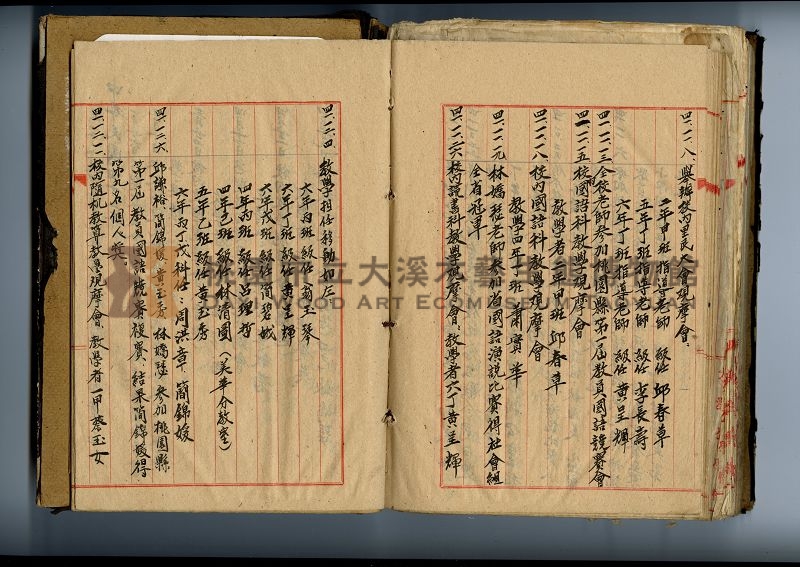 四、二、八、舉辦校內里民大會觀摩會、
二年甲班指道老師 級任 邱春草
五年丁班指道老師 級任 李長壽
六年丁班指道老師 級任 黃呈輝
四、二、二三全校老師參加桃園縣第一屆教員國語競賽會
四、二、二五校國語科教學觀摩會
教學者二年甲班 邱春草
四、二、二八校內國語科教學觀摩會
教學四年丁班 蕭寶華
四、二、二九林嬌程老師參加省國語演說比賽得社會組
全省冠軍
四、二、二六校內說書科教學觀摩會、教學者六丁黃呈輝
四、三、四、教學担任移動如左、
六年丙班 級任 翁玉琴
六年丁班 級任 黃呈輝
六年戊班 級任 簡碧娥
四年丙班 級任 呂理哲
四年己班 級任 林清國(美華分教室)
五年乙班 級任 黃玉秀
六年丙丁戊科任:周洪章、簡錦媛
四、三、六 邱謙裕 簡錦媛 黃玉秀 林嬌程 參加桃園縣
第一屆教員國語競賽複賽、結果簡錦媛得
第九名個人獎
四、三、三、校內隨机教算教學觀摩會、教學者一甲 蔡玉女
大溪木藝
WOOD ART ECOMUSEUM